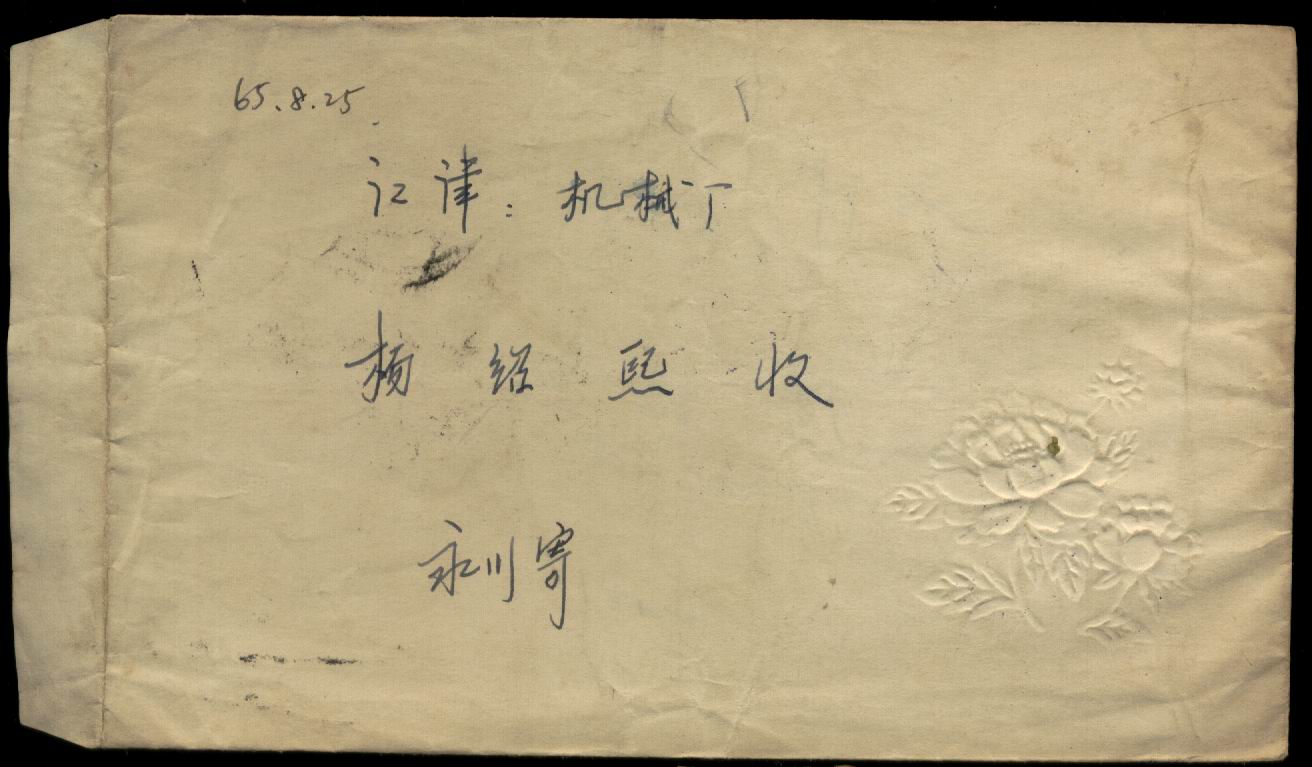 65.8.25
江津：机械厂
杨绍熙收
永川寄